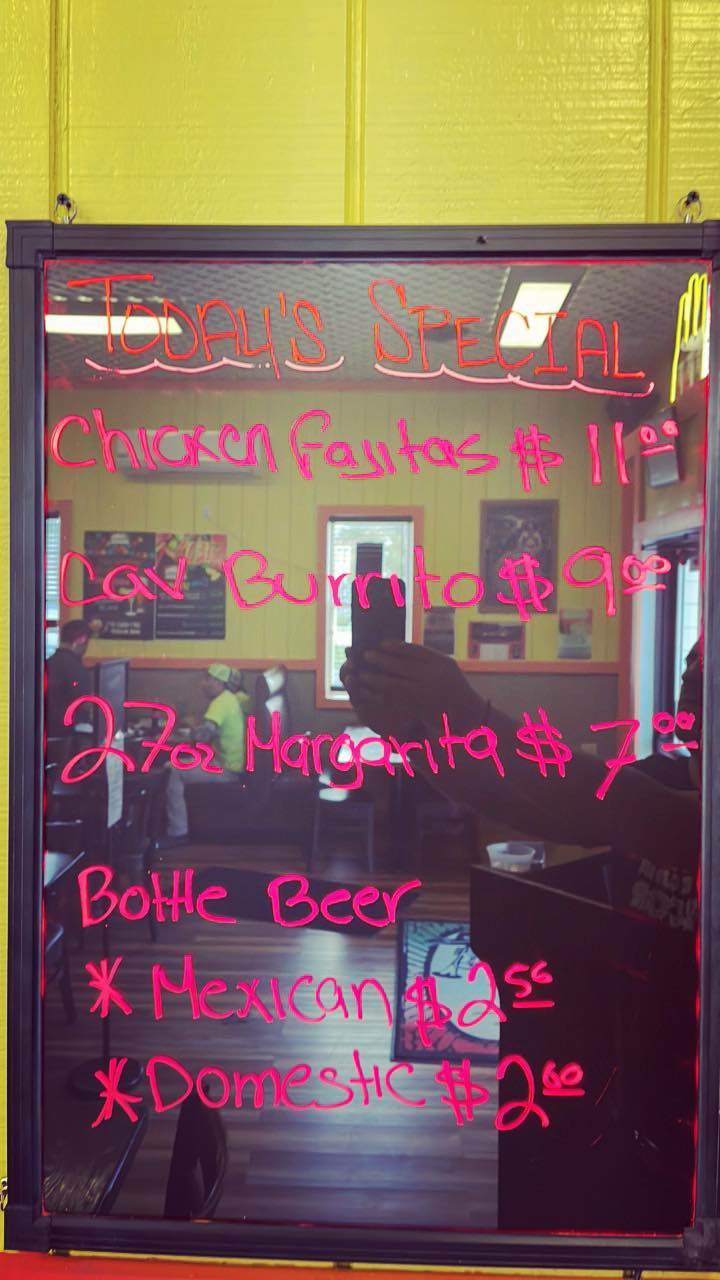 TODAY'S SPECIAL
Chicken Fajitas $ 11.00
Cav Burrito $ 9.00
27oz Margarita $ 7.00
Bottle Beer
* Mexican $ 2.50
* Domestic $ 2.00